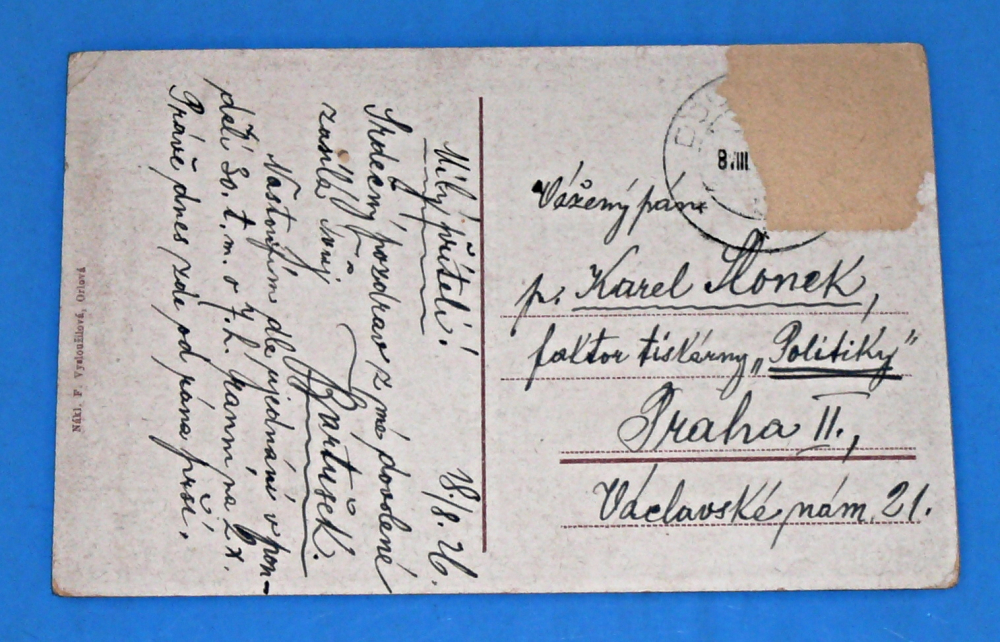 Milý příteli!
18./8. 26.
Srdečný pozdrav z mé dovolené
zasílá Tvůj
Bartušek.
Nastoupím dle ujednání v pon-
dělí 30. t. m. o 7 h. ranní na
Právě dnes zde od rána prší.
Nákl. F. Vysloužilová, Orlová
8 VIII
Vážený pán
p. Karel Slonek,
faktor tiskárny „Politiky"
Praha II.,
Václavské nám. 21.